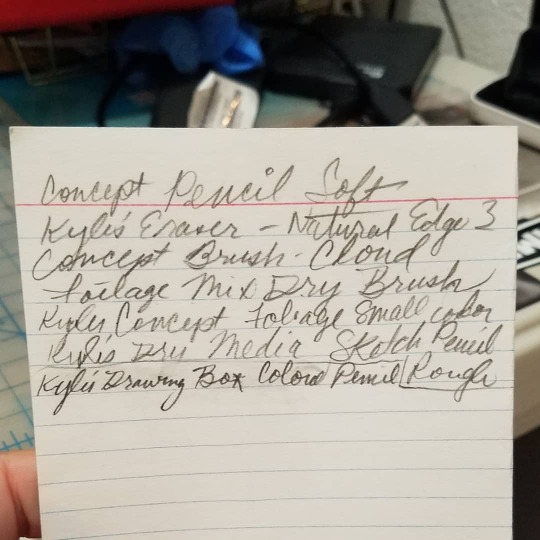 Concept Pencil Soft
Kyle's Eraser - Natural Edge 3
Concept Brush - Cloud
Foilage Mix Dry Brush
Kyles Concept Foliage Small color
Kyle's Dry Media Sketch Pencil
Kyle's Drawing Box Colored Pencil Rough